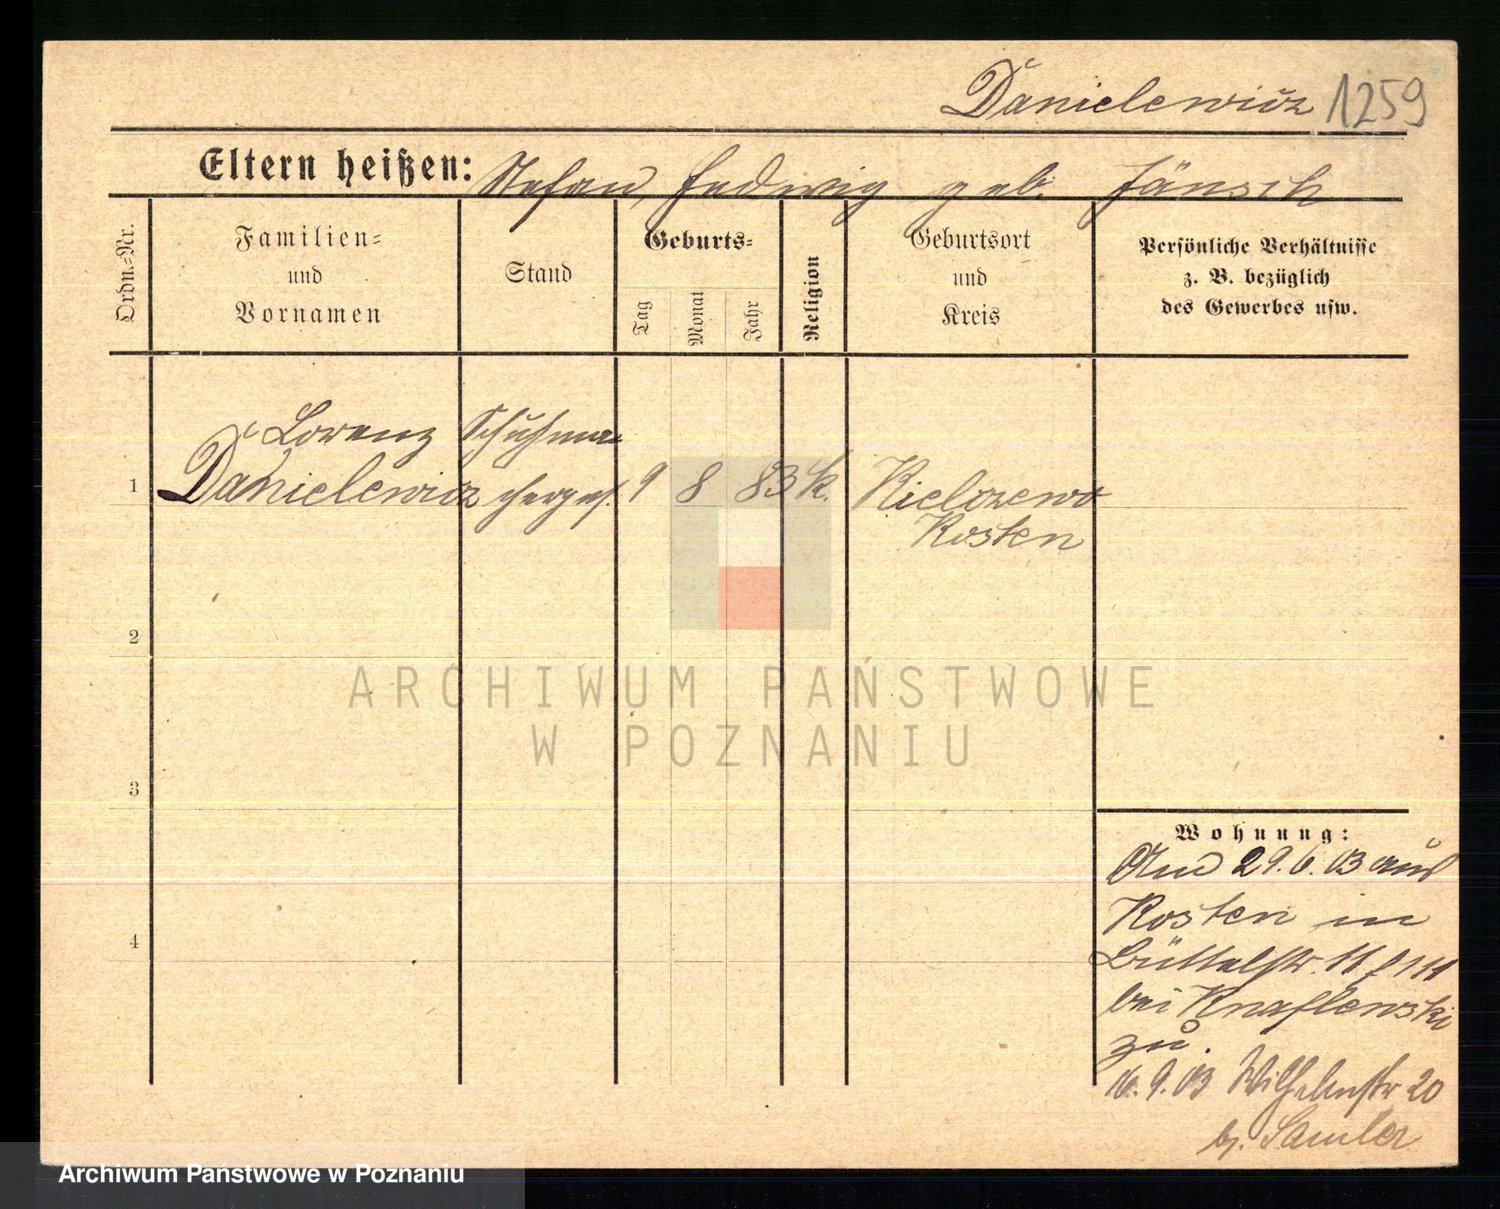 Danielewicz 1259
Eltern heißen: Stefan, Hedwig geb. Jänsch
Ordn.-Nr.
Familien-
und
Vornamen
Stand
Geburts-
Tag
Monat
Jahr
Religion
Geburtsort
und
Kreis
Persönliche Verhältnisse
z. B. bezüglich
des Gewerbes usw.
Lorenz Schuhma-
1 Danielewicz cherges. 9 8 83 k. Kielczewo
Kosten
2
3
4
Wohnung:
29.6.03 aus
Kosten in
Büttelstr. 11
bei Knaflewski
zu.
16.9.03 Wilhelmstr 20
b.
ARCHIWUM PAŃSTWOWE
W POZNANIU
Archiwum Państwowe w Poznaniu